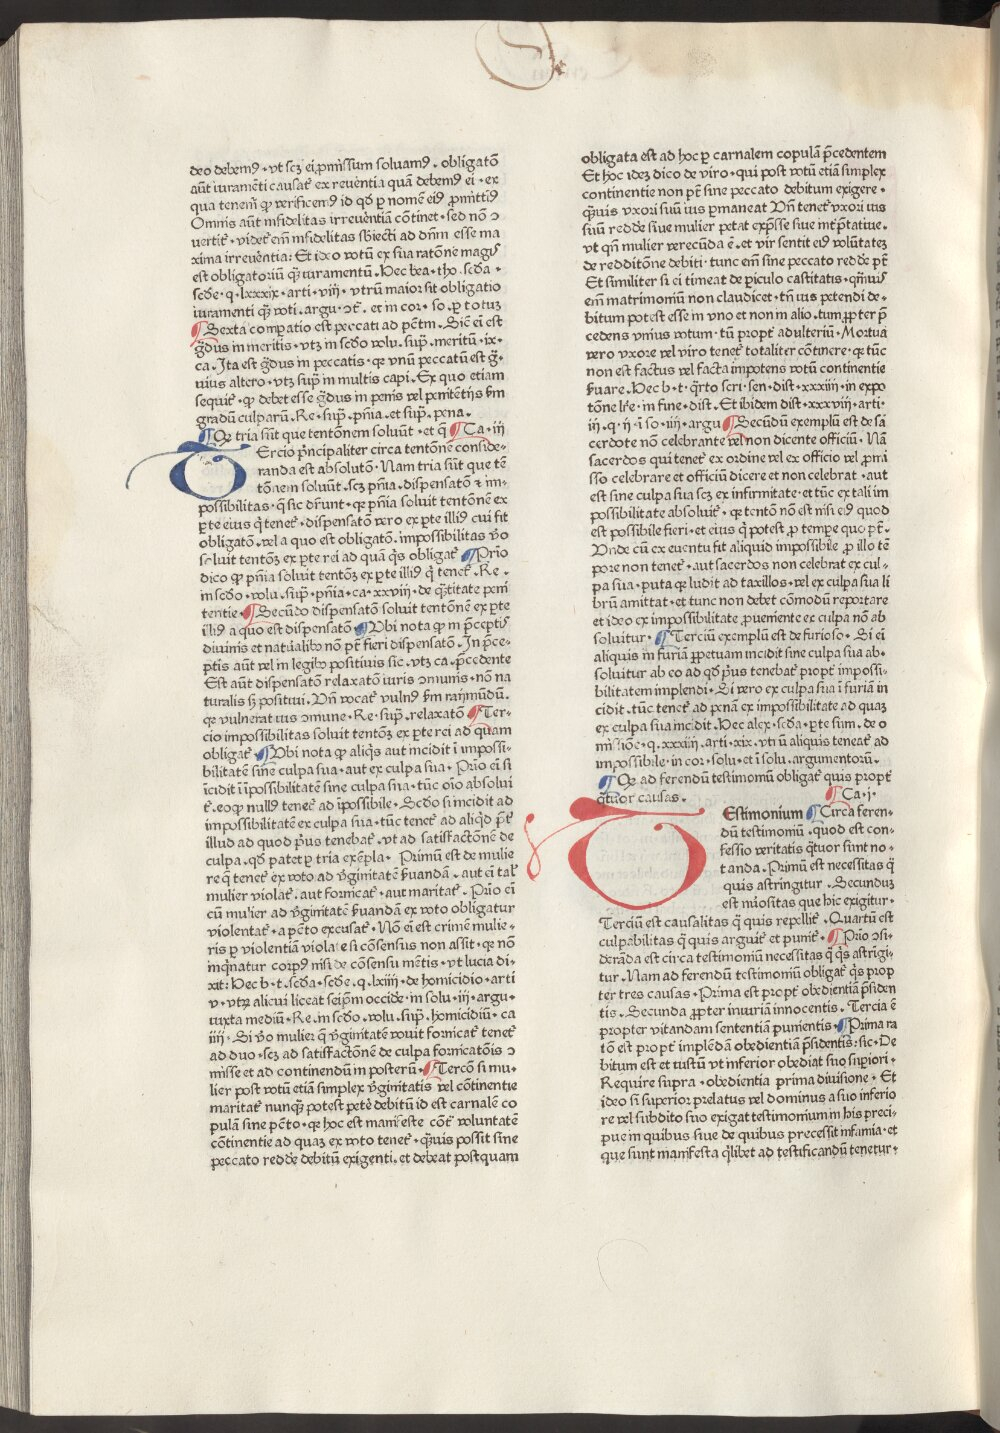 deo debemꝰ · vt scꝫ ei ꝓmissum soluamꝰ . obligatō
aūt iuramēti causat᷑ ex reuētia quā debemꝰ ei · ex
qua tenemᷣ ꝙ verificemꝰ id qđ ꝑ nomē eiꝰ ꝓmittimꝰ
Omnis aūt infidelitas irreuētiā cōtinet · sed nō ↄ
vertit᷑ · videt᷑ em̄ infidelitas sb̄iecti ad dn̄m esse ma
xima irreuētia: Et ideo votū ex sua ratōne magꝭ
est obligatoriū q̄ꝫ iuramentū . Hec bea · tho . scd̄a ·
scd̄e · q . lxxxix · arti · viij · vtrū maior sit obligatio
iuramenti q̄ꝫ voti . argu . ↄt᷑ . et in cor · so . ꝑ totuꝫ
¶ Sexta compatio est peccati ad pc̄tm . Sic̄ ei est
g̈dus in meritis · vtꝫ in scd̄o volu . sup̄ . meritū · ix ·
ca . Ita est g̈dus in peccatis · qꝛ vnū peccatū est g̈ ·
uius altero · vtꝫ sup̄ in multis capi . Ex quo etiam
sequit᷑ · ꝙ debet esse g̈dus in penis vel penitētijs ẜm
gradū culparū . Re · sup̄ . pn̄ia . et sup̄ . pena .
¶ Qꝛ tria sūt que tentōnem soluūt · et q̄ ¶ Ca · iij
TErcio pⁱncipaliter circa tentōne conside-
randa est absolutō · Nam tria sūt que tē
tōnem soluūt . scꝫ pn̄ia . dispensatō ⁊ im-
possibilitas · q̄ sic dr̄unt · qꝛ pn̄ia soluit tentōnē ex
ꝑte eius q̇ tenet᷑ · dispensatō vero ex ꝑte illiꝰ cui fit
obligatō . vel a quo est obligatō . impossibilitas v̄o
soluit tentōꝫ ex ꝑte rei ad quā q̇s obligat᷑ ¶ Prio
dico ꝙ pn̄ia soluit tentōꝫ ex ꝑte illiꝰ q̇ tenet᷑ . Re .
in scd̄o · volu . sup̄ · pn̄ia · ca · xxviij · de q̄titate peni
tentie · ¶ Secūdo dispensatō soluit tentōnē ex ꝑte
illiꝰ a quo est dispensatō ¶ Vbi nota ꝙ in p̄ceptꝭ
diuinis et natu᷑alibꝰ nō pt᷑ fieri dispensatō . In p̄ce-
ptis aūt vel in legibꝰ positiuis sic · vtꝫ ca · p̄cedente
Est aūt dispensatō relaxatō iuris ↄmunis · nō na
turalis sꝫ positiui . Vn̄ vocat᷑ vulnꝰ ẜm raymūdū .
qꝛ vulnerat ius ↄmune · Re · sup̄ . relaxatō ¶ Ter-
cio impossibilitas soluit tentōꝫ ex ꝑte rei ad quam
obligat᷑ . ¶ Vbi nota ꝙ aliq̇s aut incidit ī impossi-
bilitatē sine culpa sua · aut ex culpa sua · Prio ei si
īcidit ī īpossibilitatē sine culpa sua · tūc oīo absolui
t᷑ . eo ꝙ nullꝰ tenet᷑ ad īpossibile · Scd̄o si incidit ad
impossibilitatē ex culpa sua · tūc tenet᷑ ad aliqđ pt᷑
illud ad quod pⁱus tenebat᷑ · vt ad satisfactōnē de
culpa . qđ patet ꝑ tria exēpla · Primū est de mulie
re q̄ tenet᷑ ex voto ad v̄ginitatē ẜuandā . aut ei talꝭ
mulier violat᷑ . aut fornicat᷑ · aut maritat᷑ · Prio ei
cū mulier ad v̄ginitatē ẜuandā ex voto obligatur
violentat᷑ · a pc̄cto excusat᷑ · Nō ei est crimē mulie-
ris ꝑ violentiā violate si cōsensus non assit · qꝛ nō
inq̇natur corpꝰ nisi de cōsensu mētis · vt lucia di-
xit: Hec b · t . scd̄a · scd̄e . q . lxiiij · de homicidio · arti
v · vtꝝ alicui liceat seip̄m occide · in solu · iij · argu ·
iuxta mediū · Re · in scd̄o . volu . sup̄ . homicidiū · ca
iiij · Si v̄o mulier q̄ v̄ginitatē vouit fornicat᷑ tenet᷑
ad duo · scꝫ ad satisfactōnē de culpa fornicatōis ↄ
misse et ad continendū in posterū · ¶ Tercō si mu-
lier post votū etiā simplex v̄ginitatis vel cōtinentie
maritat᷑ nunq̄ꝫ potest petē debitū id est carnalē co
pulā sine pc̄to · qꝛ hoc est manifeste cōt᷑ voluntatē
cōtinentie ad quaꝫ ex voto tenet᷑ · q̄uis possit sine
peccato redde debitū exigenti . et debeat postquam
obligata est ad hoc ꝑ carnalem copulā p̄cedentem
Et hoc ideꝫ dico de viro · qui post votū etiā simplex
continentie non pt᷑ sine peccato debitum exigere ·
q̄uis vxori suū ius ꝑmaneat Vn̄ tenet᷑ vxori ius
suū redde siue mulier petat exp̄sse siue int̄ptatiue .
vt qn̄ mulier verecūda ē . et vir sentit eiꝰ volūtateꝫ
de redditōne debiti · tunc em̄ sine peccato redde pt᷑
Et similiter si ei timeat de ꝑiculo castitatis · q̄muis
em̄ matrimoniū non claudicet · tn̄ ius petendi de-
bitum potest esse in vno et non in alio . tum ꝓpter p̄
cedens vnius votum · tū ꝓpt᷑ adulteriū · Mortua
vero vxore vel viro tenet᷑ totaliter cōtinere · qꝛ tūc
non est factus vel facta īmpotens votū continentie
ẜuare . Hec b · t · q̄rto scri · sen · dist · xxxiiij · in expo
tōne lr̄e · in fine · dist . Et ibidem dist · xxxviij · arti ·
iij · q · ij · ī so · iij · argu ¶ Secūdū exemplū est de sa
cerdote nō celebrante vel non dicente officiū · Nā
sacerdos qui tenet᷑ ex ordine vel ex officio vel ꝓmi
sso celebrare et officiū dicere et non celebrat · aut
est sine culpa sua scꝫ ex infirmitate · et tūc ex tali im
possibilitate absoluit᷑ · qꝛ tentō nō est nisi eiꝰ quod
est possibile fieri · et eius q̇ potest ꝓ tempe quo pt᷑ .
Vnde cū ex euentu fit aliquid impossibile ꝓ illo tē
pore non tenet᷑ · aut sacerdos non celebrat ex cul-
pa sua · puta qꝛ ludit ad taxillos · vel ex culpa sua li
brū amittat · et tunc non debet cōmodū reportare
et ideo ex impossibilitate ꝓueniente ex culpa nō ab
soluitur · ¶ Terciū exemplū est de furioso · Si ei
aliquis in furiā ꝑpetuam incidit sine culpa sua ab-
soluitur ab eo ad qđ pⁱus tenebat᷑ ꝓpt᷑ impossi-
bilitatem implendi · Si vero ex culpa sua ī furiā in
cidit · tūc tenet᷑ ad penā ex impossibilitate ad quaꝫ
ex culpa sua incidit . Hec alex · scd̄a · ꝑte sum . de o
missiōe · q . xxxiij . arti · xix . vtrū aliquis teneat᷑ ad
impossibile · in cor · solu · et ī solu . argumentorū .
¶ Qꝛ ad ferendū testimoniū obligat᷑ quis ꝓpt᷑
q̄tuor causas . ¶ Ca · j ·
TEstimonium ¶ Circa feren-
dū testimoniū · quod est con-
fessio veritatis q̄tuor sunt no-
tanda . Primū est necessitas q̄
quis astringitur . Secunduꝫ
est nūositas que hic exigitur ·
Terciū est causalitas q̄ quis repellit᷑ . Quartū est
culpabilitas q̄ quis arguit᷑ et punit᷑ · ¶ Prio ↄsi-
derāda est circa testimoniū necessitas q̄ q̇s astrīgi-
tur . Nam ad ferendū testimoniū obligat᷑ q̇s prop
ter tres causas · Prima est ꝓpt᷑ obedientiā p̄siden
tis · Secunda ꝓpter iniuriā innocentis . Tercia ē
propter vitandam sententiā punientis · ¶ Prima ra
tō est ꝓpt᷑ implēdā obedientiā p̄sidentis: sic · De
bitum est et iustū vt inferior obediat suo supiori ·
Require supra · obedientia prima diuisione · Et
ideo si superior prelatus vel dominus a suo inferio
re vel subdito suo exigat testimonium in his preci-
pue in quibus siue de quibus precessit infamia · et
que sunt manifesta q̇libet ad testificandū tenetur ·